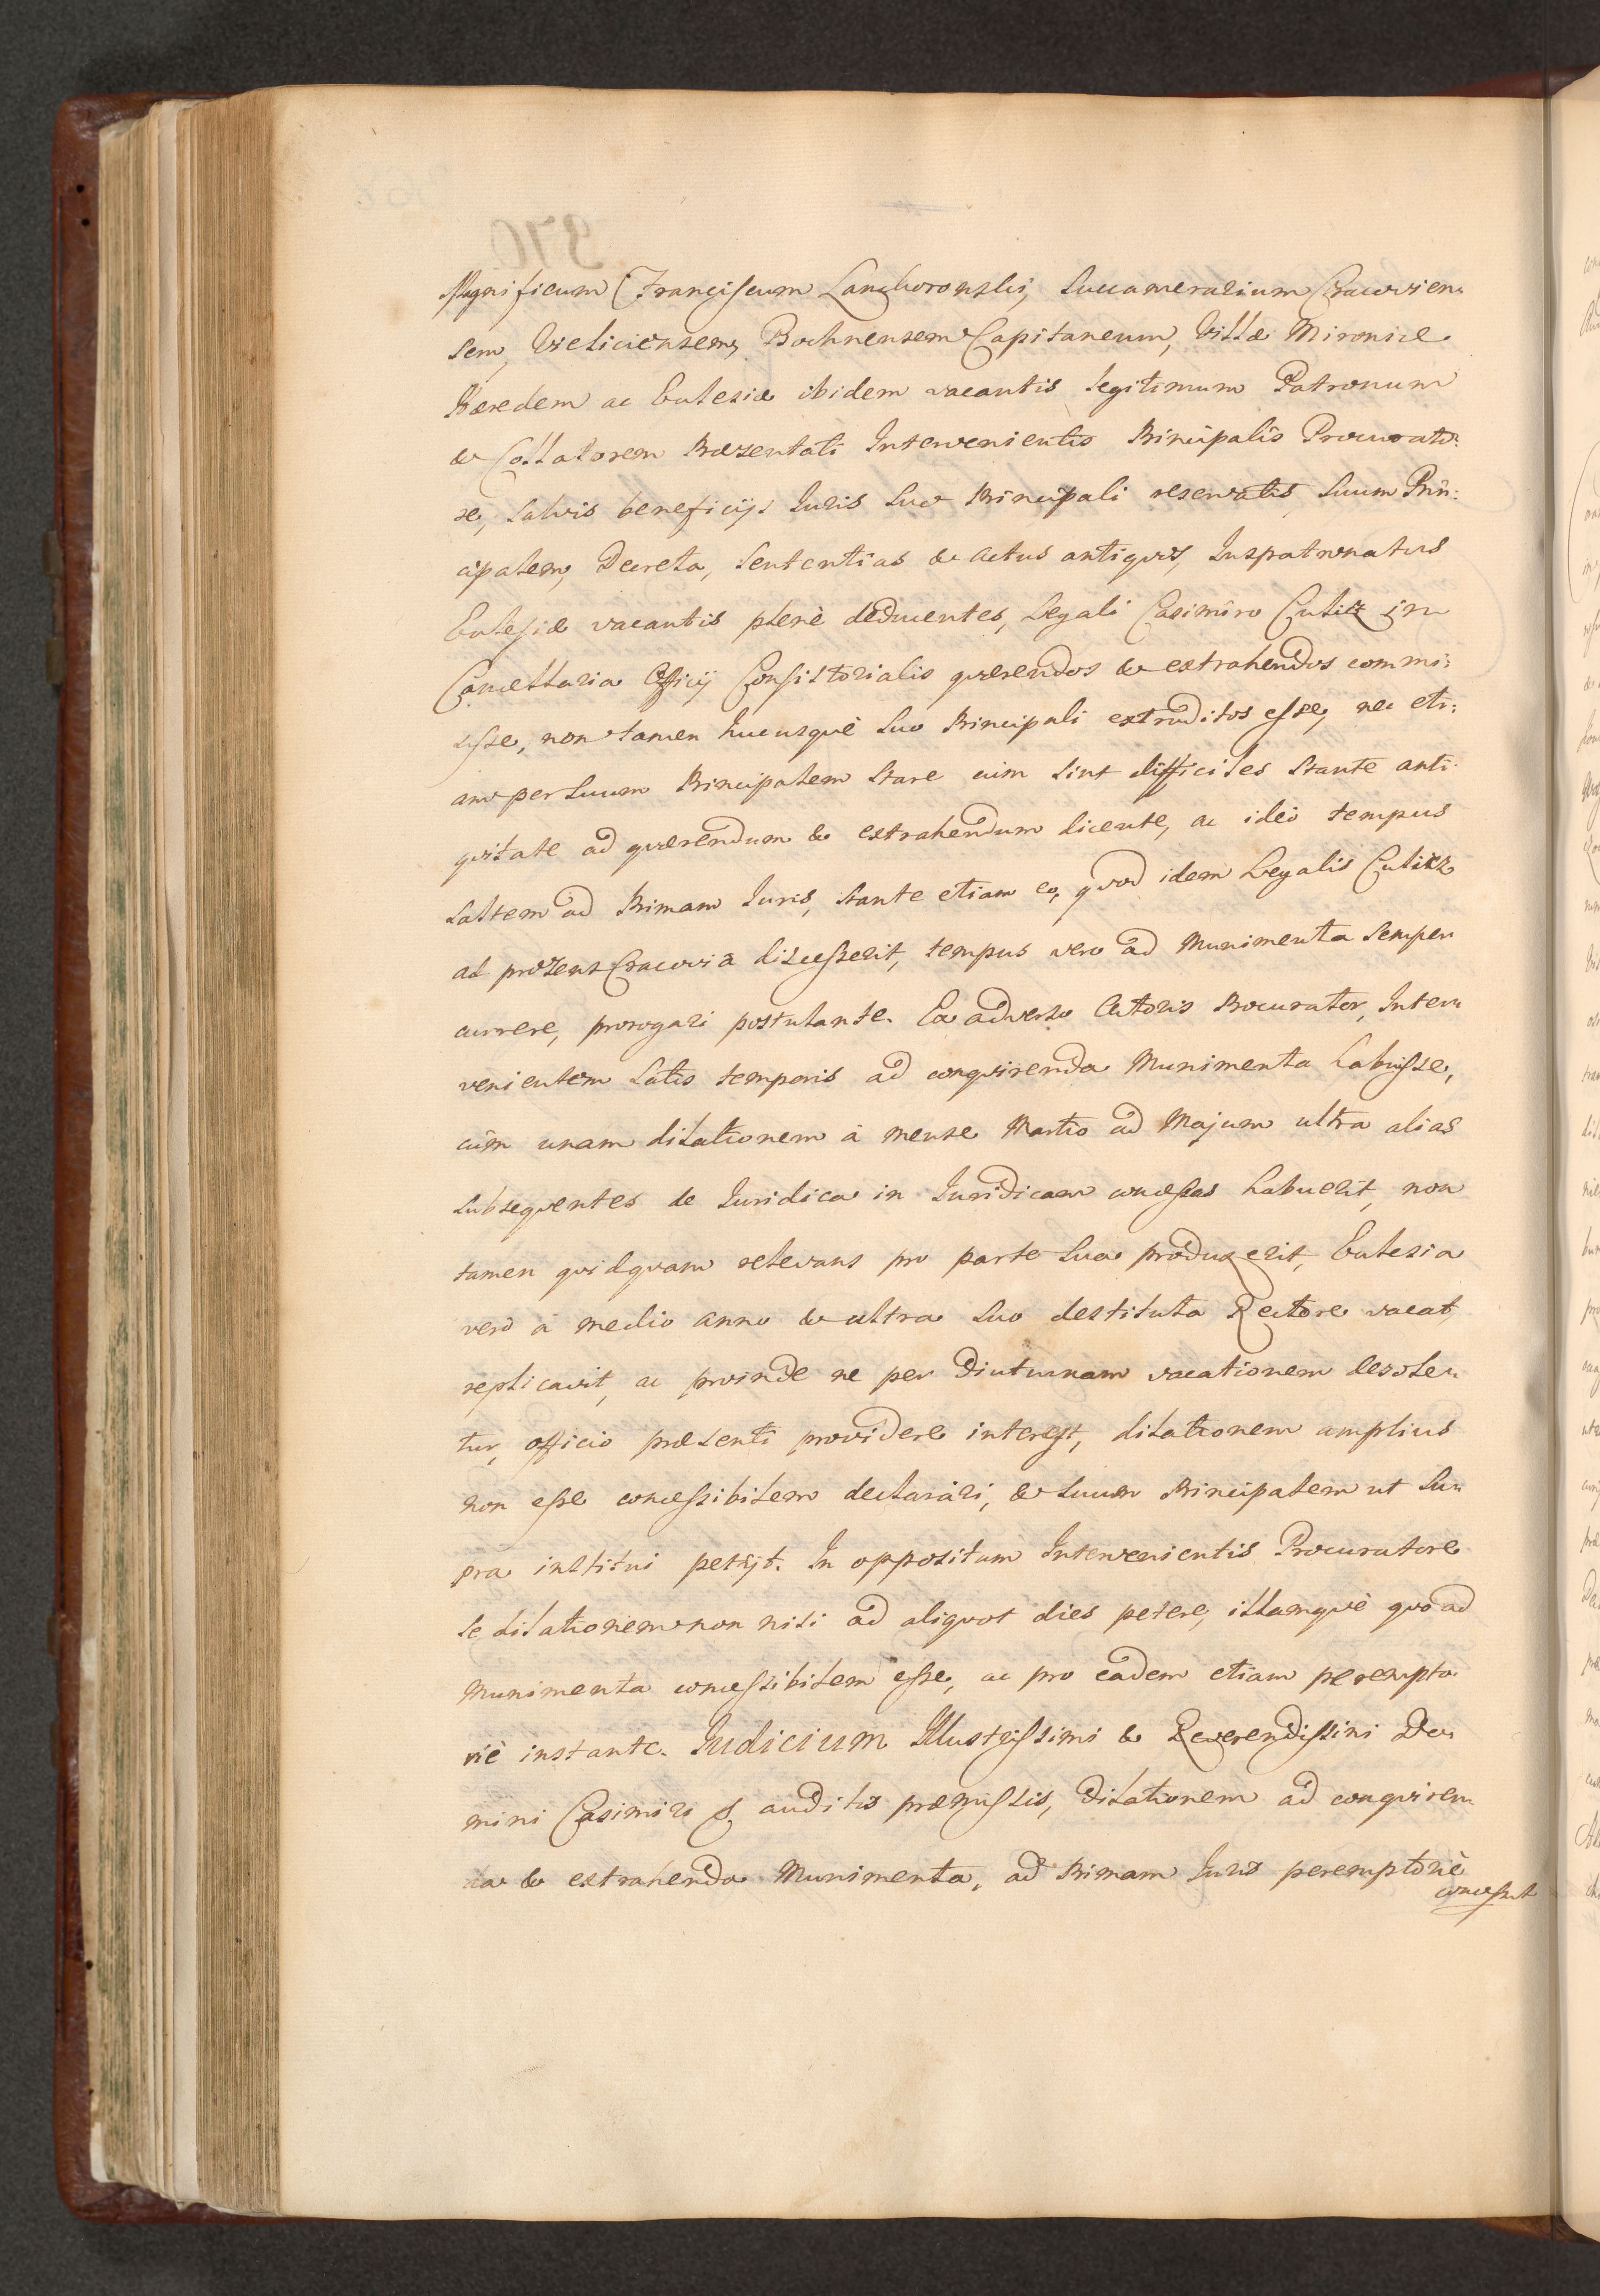 Magnificum Franciscum Lanckoronski, Succamerarium Cracovien-
sem, Vieliciensem, Bochnensem Capitaneum, Villæ Mironice
Hæredem ac Eclesiæ ibidem vacantis legitimum Patronum
& Collatorem Præsentati Intervenientis Principalis Procurato:
re, salvis beneficijs Iuris suo Principali reservatis, suum Prin:
cipalem, Decreta, Sententias & actus antiquos, Iuspatronatus
Eclesiæ vacantis plenè deducentes, Legali Casimiro Culicz in
Cancellaria Officij Consistorialis quærendos & extrahendos commi:
sisse, non tamen hucusquè suo Principali extraditos esse, nec eti:
am per suum Principalem stare cùm sint difficiles stante anti:
quitate ad quærendum & extrahendum dicente, ac ideò tempus
saltem ad Primam Iuris, stante etiam eo, quod idem Legalis Culicz
ad præsens Cracoviâ discesserit, tempus vero ad Munimenta semper
currere, prorogari postulante. Ex adverso Actoris Procurator, Inter-
venientem satis temporis ad conquirenda Munimenta habuisse,
cùm unam dilationem à mense Martio ad Majum ultra alias
subsequentes de Iuridica in Iuridicam concessas habuerit, non
tamen quidquam relevans pro parte sua produxerit, Eclesia
verò à medio anno & ultra suo destituta Rectore vacat,
replicavit, ac proinde ne per diuturnam vacationem desole-
tur, officio præsenti providere interest, dilationem amplius
non esse concessibilem declarari, & suum Principalem ut su-
pra institui petijt. In oppositum Intervenientis Procuratore
se dilationem non nisi ad aliquot dies petere, illamquè quo ad
Munimenta concessibilem esse, ac pro eadem etiam perempto
riè instante. Iudicium Illustrissimi & Reverendissimi Do-
mini Casimiri &, auditis præmissis, dilationem ad conquiren-
da & extrahenda Munimenta, ad Primam Iuris peremptoriè
concessit